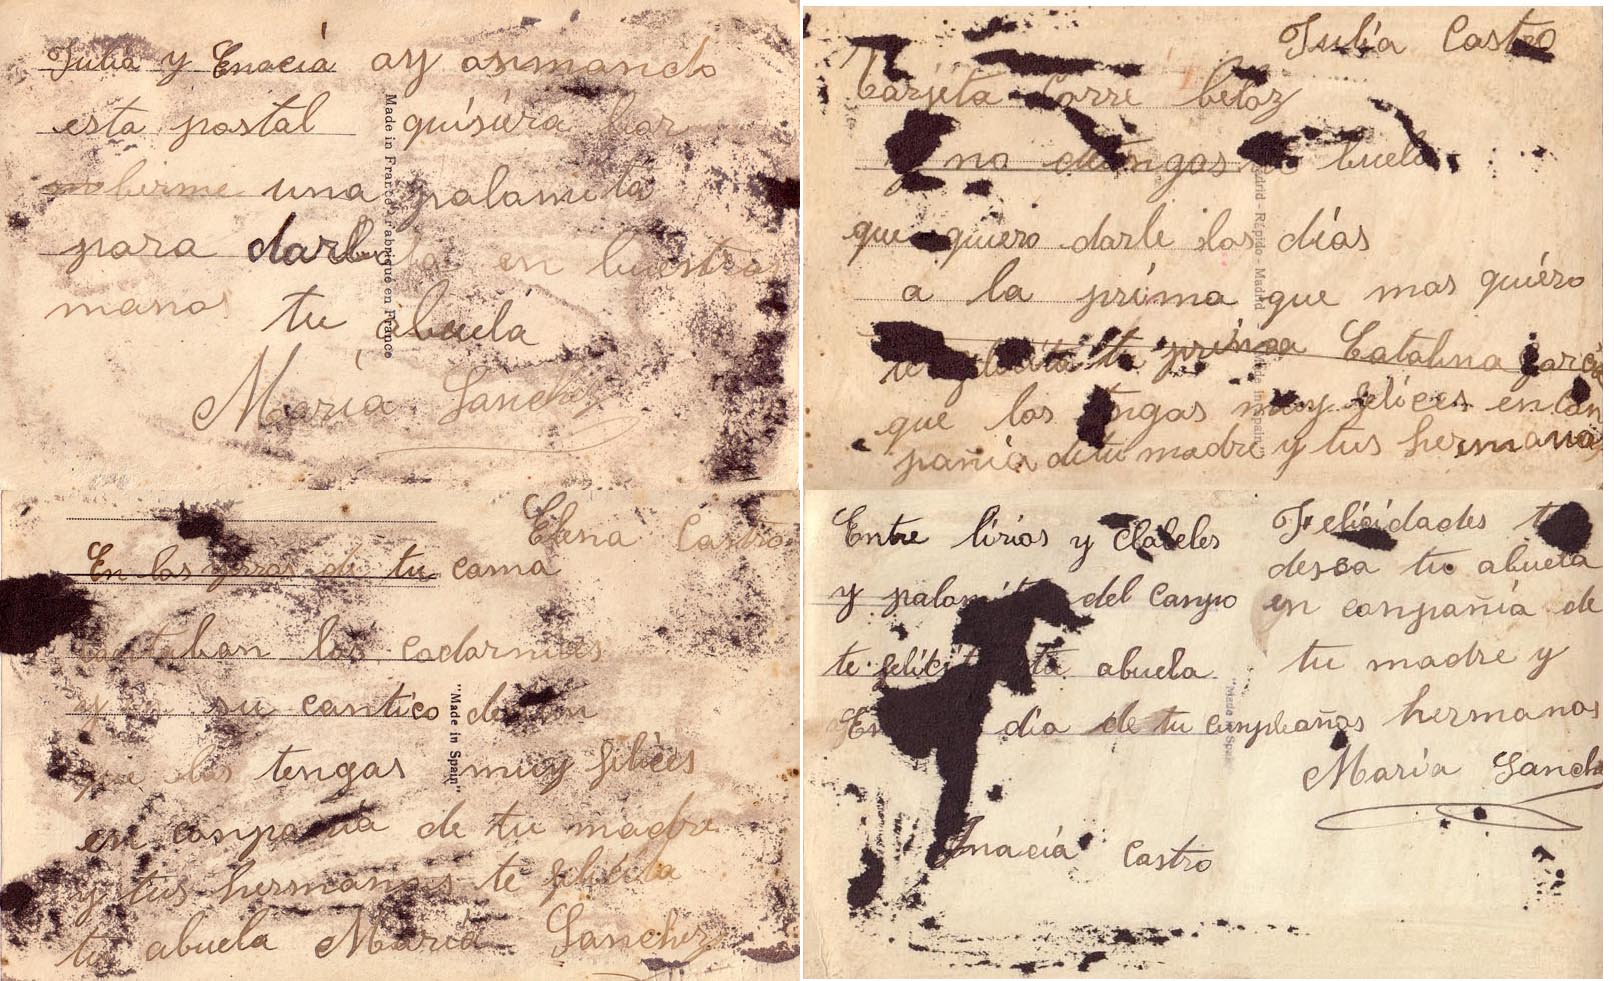 Julia y Enacia ay osmando
esta postal quisiera bor
birme una palomita
para darle en buestras
manos tu abuela
María Sanchez
Made in France - Fabriqué en France
Julia Castro
tarjeta Corre beloz
y no detengas buelo
que quiero darle los días
a la prima que mas quiéro
te felicita tu prima Catalina Garcia
que los tengas muy felices en con
pañia de tu madre y tus hermanas
Elena Castro
En las de tu cama
los codornices
y su cantico
que los tengas muy felices
en conpañia de tu madre
y tus hermanos te felicita
tu abuela María Sanchez
"Made in Spain"
Entre lirios y Clabeles
y palomitas del Canpo
te felicita tu abuela
En dia de tu cunpleaños
Felicidades te
desea tu abuela
en conpañia de
tu madre y
hermanos
María Sanchez
Inacia Castro